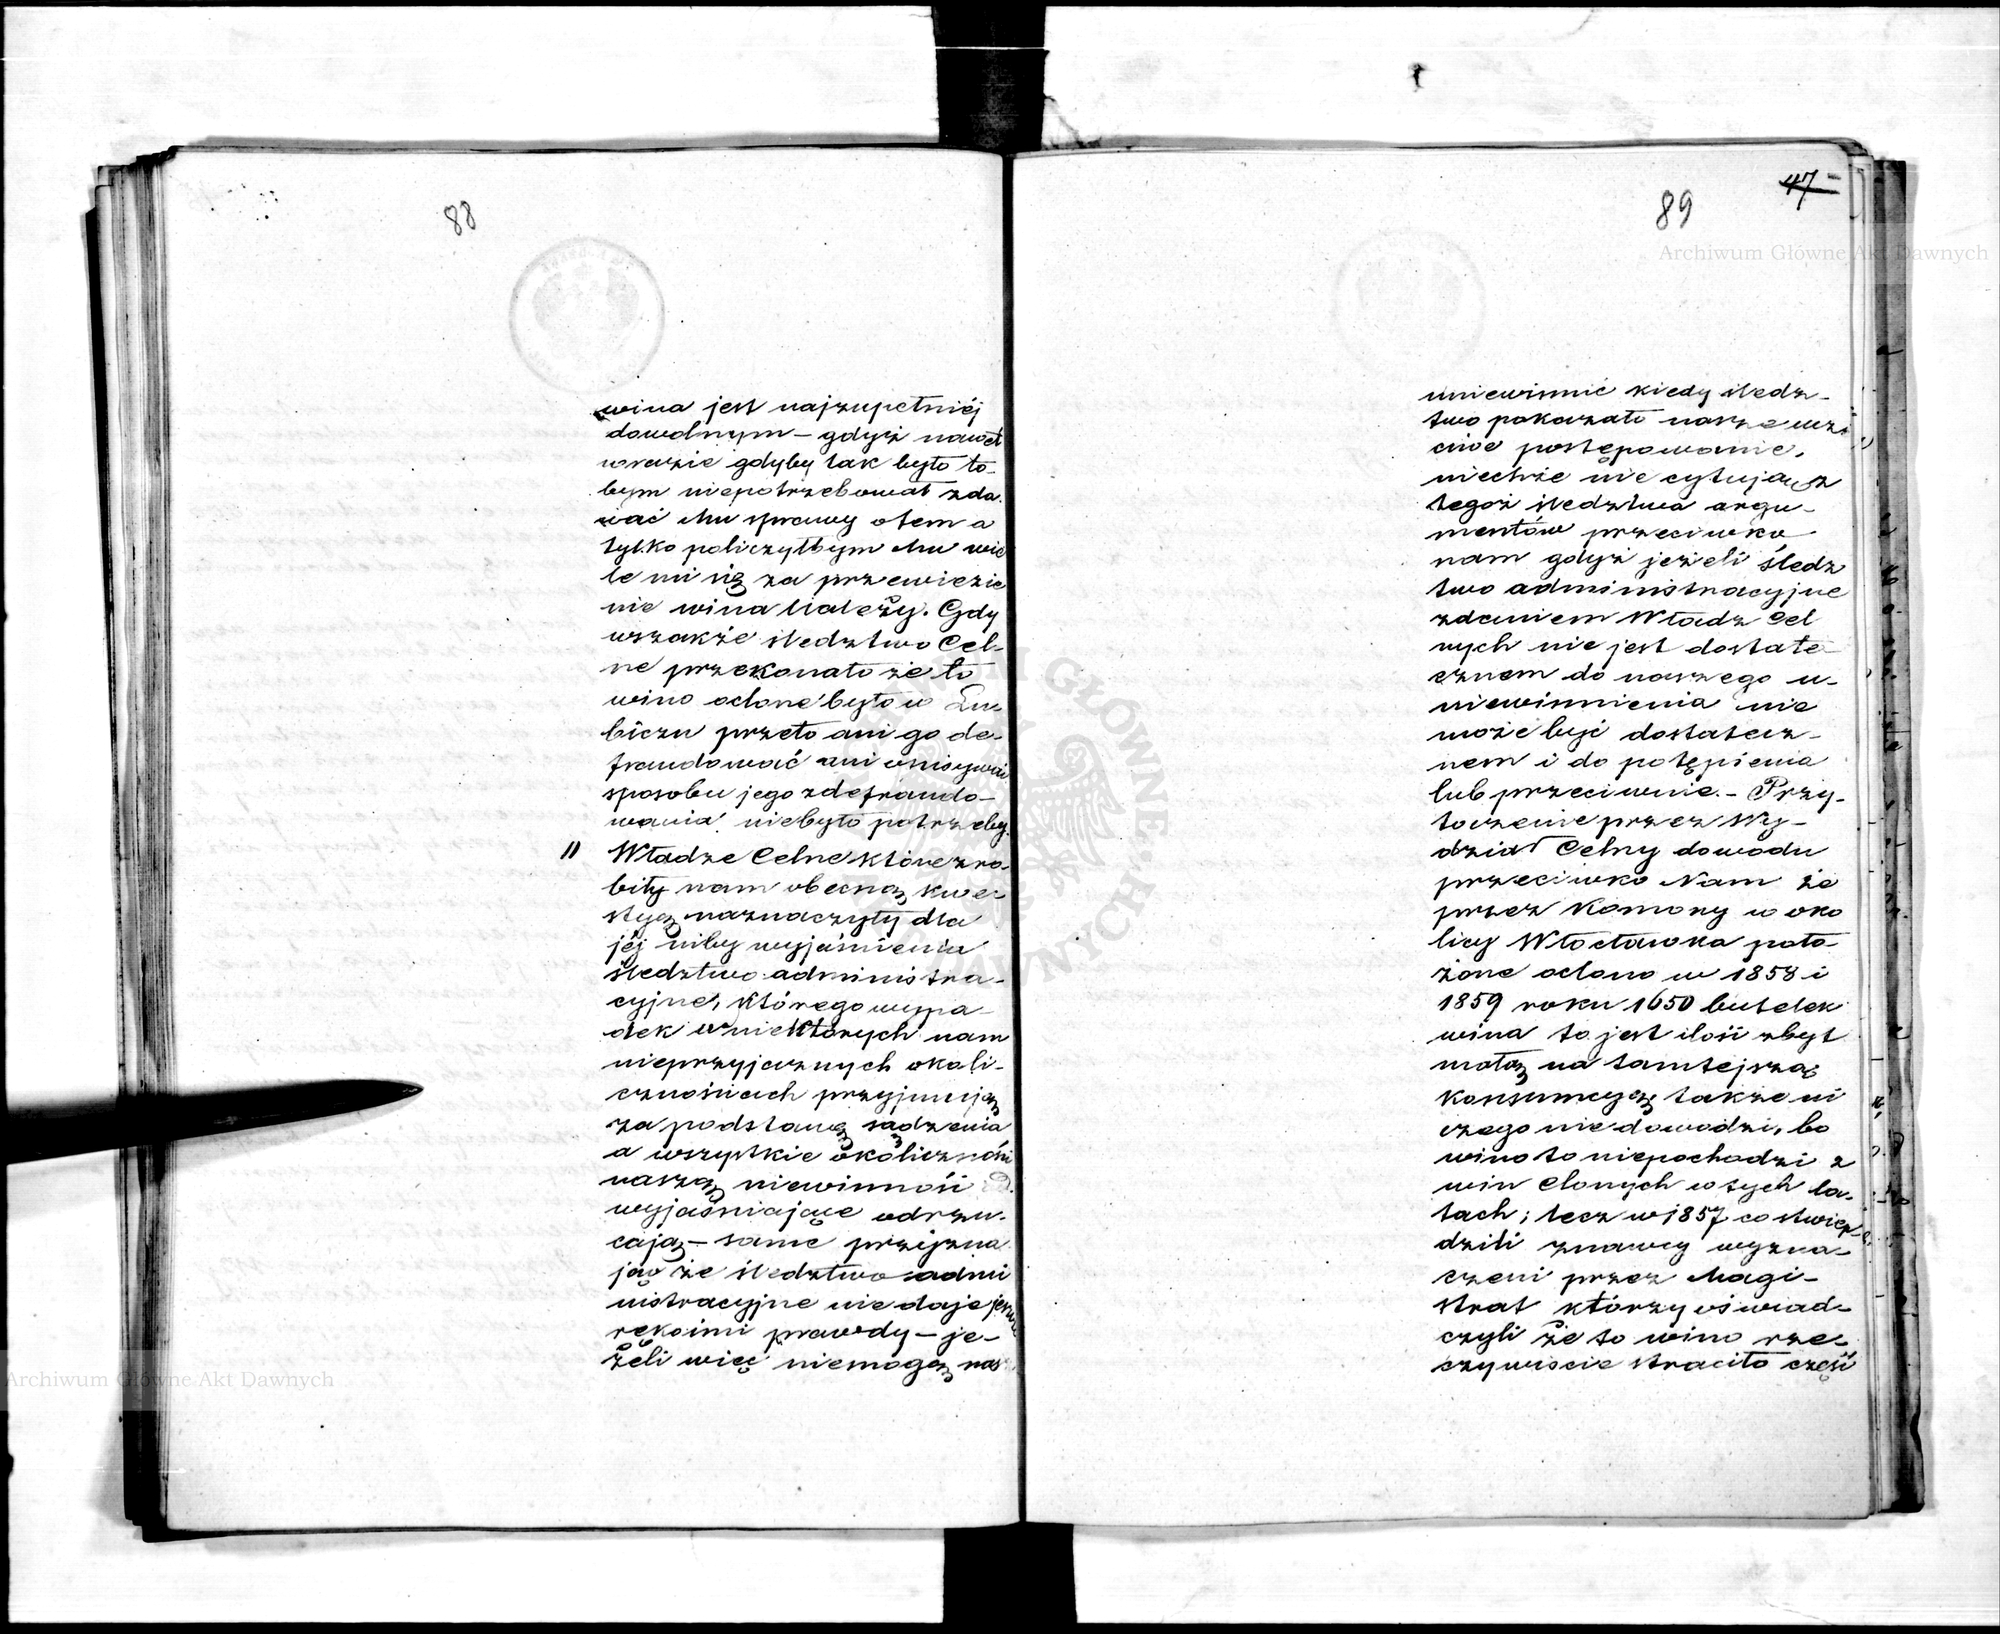 88
wina jest najzupełniéj
dowolnym – gdyż nawet
wrazie gdyby tak było to
bym niepotrzebował zda
wać Mu sprawy otem a
tylko policzyłbym Mu wie
le mi się za przewiezie
nie wina należy. Gdy
wszakże śledztwo Cel-
ne przekonało że to
wino oclone było w Lu
biczu przeto ani go de-
fraudować ani
sposobu jego zdefraudo-
wania niebyło potrzeby.
11 Władze Celne które zro-
biły nam obecną kwe-
styą naznaczyły dla
jéj niby wyjaśnienia
śledztwo administra-
cyjne, którego wypa-
dek w niektórych nam
nieprzyjaznych okoli-
cznościach przyjmują
za podstawę sądzenia
a wszystkie okoliczności
naszą niewinność
wyjaśniające odrzu-
cają – same przyzna
jąc że śledztwo admi
nistracyjne nie daje
rękoimi prawdy – je-
żeli więc niemogą nas
47
89
uniewinnić kiedy śledz-
two pokazało nasze uczci
ciwe postępowanie,
niechże nie cytują z
tegoż śledztwa argu-
mentów przeciwko
nam gdyż jeżeli śledz
two administracyjne
zdaniem Władz Cel
nych nie jest dostate
cznem do naszego u-
niewinnienia nie
może być dostatecz-
nem i do potępienia
lub przeciwnie. – Przy-
toczenie przez Wy-
dział Celny dowodu
przeciwko Nam że
przez Komory w oko
licy Włocławka poło-
żone oclono w 1858 i
1859 roku 1650 butelek
wina to jest ilość zbyt
małą na tamtejszą
konsumcyą także ni
czego nie dowodzi, bo
wino to niepochodzi z
win clonych w tych la-
tach; lecz w 1857 co stwier-
dzili znawcy wyzna-
czeni przez Magi-
strat którzy oświad-
czyli że to wino rze-
czywiscie straciło część
Archiwum Główne Akt Dawnych
Archiwum Główne Akt Dawnych